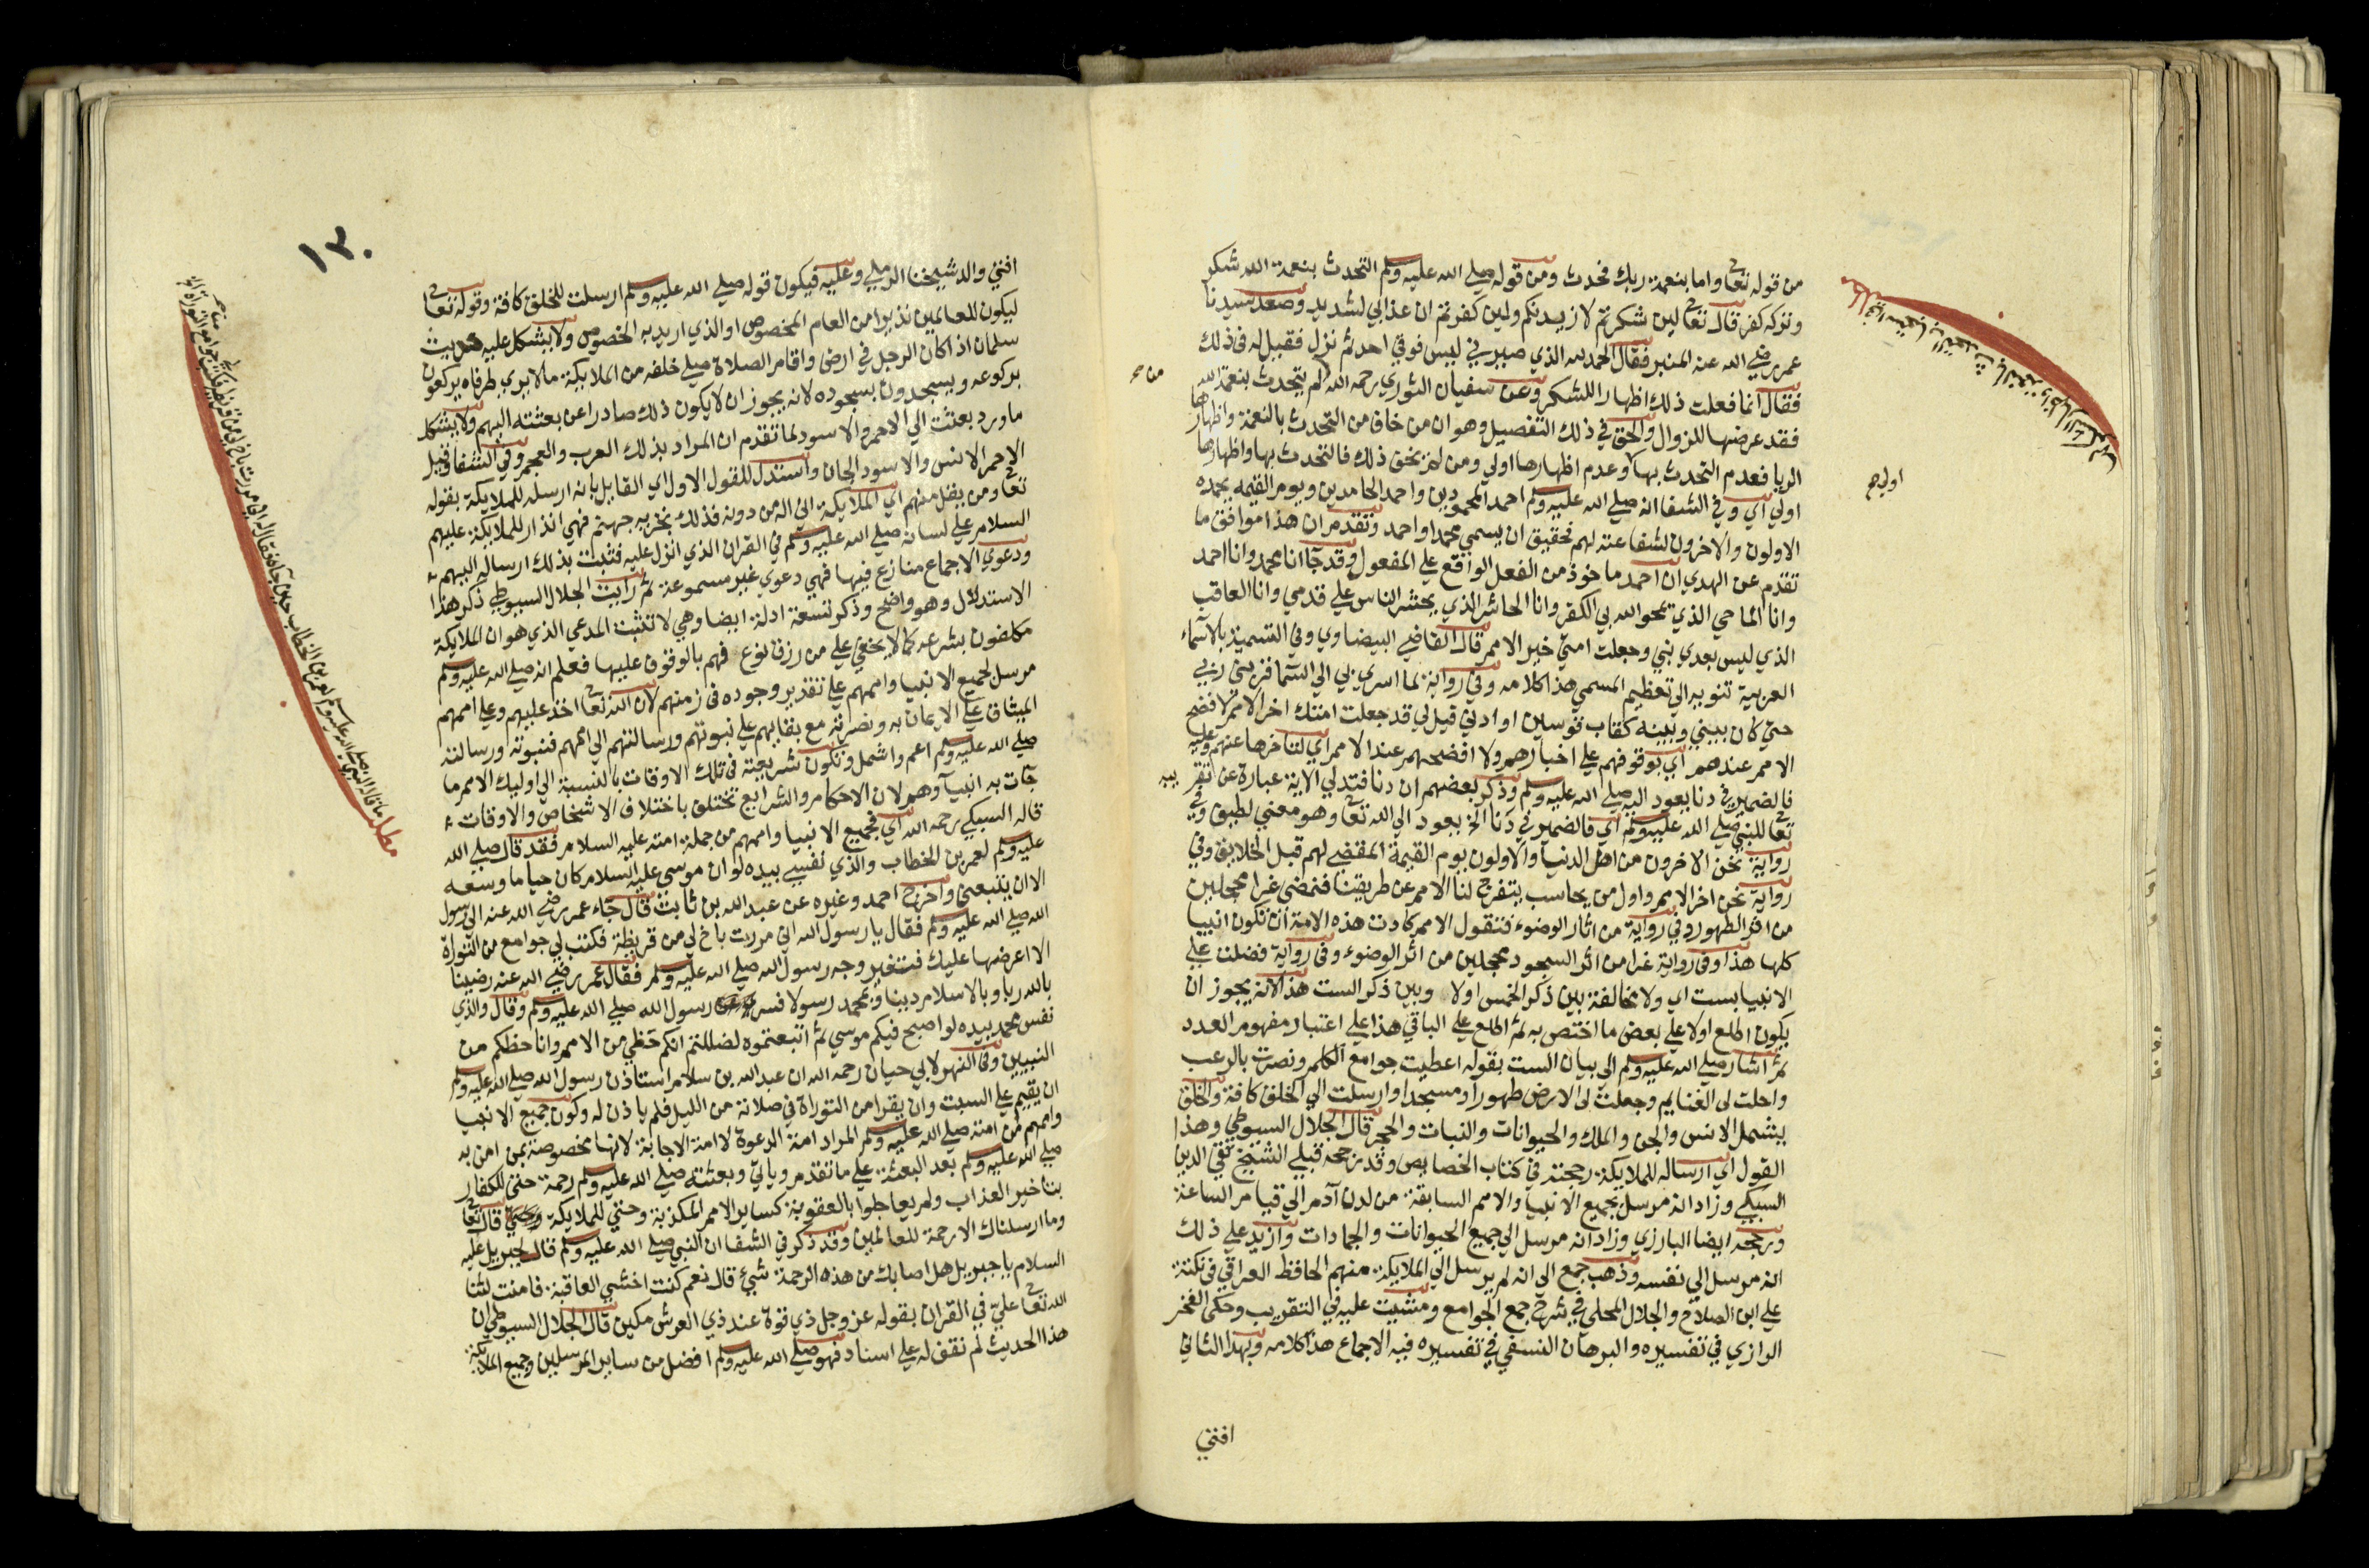 من قوله تعالى واما بنعمة ربك فحدث ومن قوله صلي الله عليه وسلم التحدث بنعمة الله شكر
وتركه كفر قال تعالى لين شكرتم لازيدنكم ولين كفرتم ان عذابي لشديد وصعد سيدنا
عمر رضي الله عنه المنبر فقال الحمد لله الذي صيرني ليس فوقي احد ثم نزل فقيل له في ذلك
فقال انما فعلت ذلك اظهارا للشكر وعن سفيان الثوري رحمه الله من لم يتحدث بنعمة الله
فقد عرضها للزوال والحق في ذلك التفصيل وهو ان من خاف من التحدث بالنعمة واظهارها
الريا فعدم التحدث بها وعدم اظهارها اولي ومن لم يخف ذلك فالتحدث بها واظهارها
اولي اي وفي الشفا انه صلي الله عليه وسلم احمد المحمودين واحمد الحامدين ويوم القيمه يحمده
الاولون والاخرون لشفاعته لهم فحقيق ان يسمي محمدا واحمد وتقدم ان هذا موافق ما
تقدم عن الهدي ان احمد ماخوذ من الفعل الواقع علي المفعول وقد جا انا محمد وانا احمد
وانا الماحي الذي يمحو الله بي الكفر وانا الحاشر الذي يحشر الناس علي قدمي وانا العاقب
الذي ليس بعدي نبي وجعلت امتي خير الامم قال القاضي البيضاوي وفي التسمية بالاسماء
العربية تنويه الي تعظيم المسمي هذا كلامه وفي رواية لما اسري بي الي السما قربني ربي
حتي كان بيني وبينه كقاب قوسين او ادني قيل لي قد جعلت امتك اخر الامم لافضح
الامم عندهم اي بوقوفهم علي اخبارهم ولا افضحهم عند الامم اي لتاخرها عنهم وعليه
فالضمير في دنا يعود اليه صلي الله عليه وسلم وذكر بعضهم ان دنا فتدلي الاية عبارة عن تقريبه
تعالى للنبي صلي الله عليه وسلم اي فالضمير في دنا الخ يعود الي الله تعالى وهو معني لطيف وفي
رواية نحن الاخرون من اهل الدنيا والاولون يوم القيمة المقضي لهم قبل الخلايق وفي
رواية نحن اخر الامم واول من يحاسب يتفرج لنا الامم عن طريقنا فنمضي غرا محجلين
من اثر الطهور وفي رواية من اثار الوضوء فتقول الامم كادت هذه الامة ان تكون انبيا
كلها هذا وفي رواية غرا من اثر السجود محجلين من اثر الوضوء وفي رواية فضلت علي
الانبيا بست اي ولا مخالفة بين ذكر الخمس اولا وبين ذكر الست هنا لانه يجوز ان
يكون اطلع اولا علي بعض ما اختص به ثم اطلع علي الباقي هذا علي اعتبار مفهوم العدد
ثم اشار صلي الله عليه وسلم الي بيان الست بقوله اعطيت جوامع الكلم ونصرت بالرعب
واحلت لي الغنايم وجعلت لي الارض طهورا ومسجدا وارسلت الي الخلق كافة والخلق
يشمل الانس والجن والملك والحيوانات والنبات والحجر قال الجلال السيوطي وهذا
القول اي ارساله للملايكة رجحته في كتاب الخصايص وقد رجحه قبلي الشيخ تقي الدين
السبكي وزاد انه مرسل لجميع الانبيا والامم السابقة من لدن آدم الي قيام الساعة
ورجحه ايضا البارزي وزاد انه مرسل الي جميع الحيوانات والجمادات وازيد علي ذلك
انه مرسل الي نفسه وذهب جمع الي انه لم يرسل الي الملايكة منهم الحافظ العراقي في نكتة
علي ابن الصلاح والجلال المحلي في شرح جمع الجوامع ومشيت عليه في التقريب وحكي الفخر
الرازي في تفسيره والبرهان النسفي في تفسيره فيه الاجماع هذا كلامه وبهذا الثاني
افتي
من صح
اولي صح
١٣٠
افتي والد شيخنا الرملي وعليه فيكون قوله صلي الله عليه وسلم ارسلت للخلق كافة وقوله تعالى
ليكون للعالمين نذيرا من العام المخصوص او الذي اريد به الخصوص ولا يشكل عليه حديث
سلمان اذا كان الرجل في ارض واقام الصلاة صلي خلفه من الملايكة ما لا يري طرفاه يركعون
بركوعه ويسجدون بسجوده لانه يجوز ان لا يكون ذلك صادرا عن بعثته اليهم ولا يشكل
ما ورد بعثت الي الاحمر والاسود لما تقدم ان المراد بذلك العرب والعجم وفي الشفا وقيل
الاحمر الانس والاسود الجان واستدل للقول الاول اي القايل بانه ارسله للملايكة بقوله
تعالى ومن يقل منهم اي الملايكة اني اله من دونه فذلك نجزيه جهنم فهي انذار للملايكة عليهم
السلام علي لسانه صلي الله عليه وسلم في القران الذي انزل عليه فثبت بذلك ارساله اليهم
ودعوي الاجماع منازع فيها فهي دعوي غير مسموعة ثم رايت الجلال السيوطي ذكر هذا
الاستدلال وهو واضح وذكر تسعة ادلة ايضا وهي لا تثبت المدعي الذي هو ان الملايكة
مكلفون بشرعه كما لا يخفي علي من رزق نوع فهم بالوقوف عليها فعلم انه صلي الله عليه وسلم
مرسل لجميع الانبيا واممهم علي تقدير وجوده في زمنهم لان الله تعالى اخذ عليهم وعلي اممهم
الميثاق علي الايمان به ونصرته مع بقايهم علي نبوتهم ورسالتهم الي اممهم فنبوته ورسالته
صلي الله عليه وسلم اعم واشمل وتكون شريعته في تلك الاوقات بالنسبة الي اوليك الامم ما
جات به انبياوهم لان الاحكام والشرايع تختلف باختلاف الاشخاص والاوقات
قاله السبكي رحمه الله اي فجميع الانبيا واممهم من جملة امته عليه السلام فقد قال صلي الله
عليه وسلم لعمر بن الخطاب والذي نفسي بيده لو ان موسي عليه السلام كان حيا ما وسعه
الا ان يتبعني واخرج احمد وغيره عن عبد الله بن ثابت قال جاء عمر رضي الله عنه الي رسول
الله صلي الله عليه وسلم فقال يا رسول الله اني مررت باخ لي من قريظة فكتب لي جوامع من التوراة
الا اعرضها عليك فتغير وجه رسول الله صلي الله عليه وسلم فقال عمر رضي الله عنه رضينا
بالله ربا وبالاسلام دينا وبمحمد رسولا فسري عن رسول الله صلي الله عليه وسلم وقال والذي
نفس محمد بيده لو اصبح فيكم موسي ثم اتبعتموه لضللتم انكم حظي من الامم وانا حظكم من
النبيين وفي النهر لابي حيان رحمه الله ان عبد الله بن سلام استاذن رسول الله صلي الله عليه وسلم
ان يقيم علي السبت وان يقرا من التوراة في صلاته من الليل فلم ياذن له وكون جميع الانبيا
واممهم من امته صلي الله عليه وسلم المراد امة الدعوة لا امة الاجابة لانها مخصوصة بمن امن به
صلي الله عليه وسلم بعد البعثة علي ما تقدم وياتي وبعثته صلي الله عليه وسلم رحمة حتي للكفار
بتاخير العذاب ولم يعاجلوا بالعقوبة كساير الامم المكذبة وحتي للملايكة قال تعالى
وما ارسلناك الا رحمة للعالمين وقد ذكر في الشفا ان النبي صلي الله عليه وسلم قال لجبريل عليه
السلام يا جبريل هل اصابك من هذه الرحمة شيء قال نعم كنت اخشي العاقبة فامنت لثنا
الله تعالى علي في القران بقوله عز وجل ذي قوة عند ذي العرش مكين قال الجلال السيوطي ان
هذا الحديث لم نقف له علي اسناد فهو صلي الله عليه وسلم افضل من ساير المرسلين وجميع الملايكة